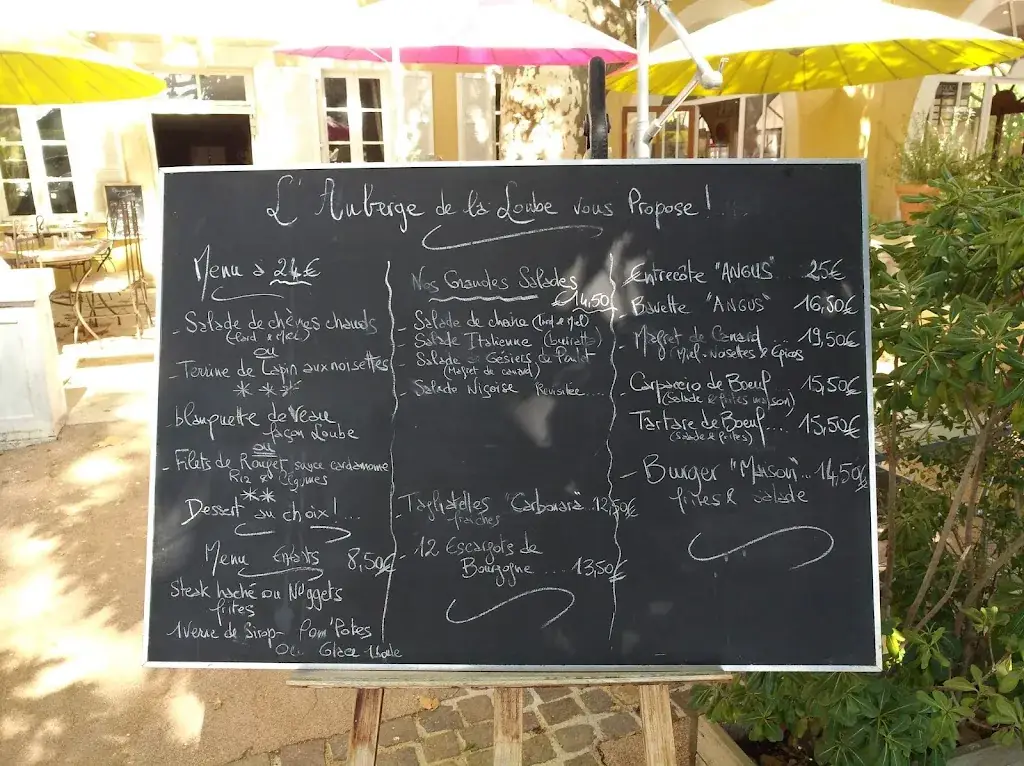 L'Auberge de la Loube vous Propose !
Menu à 24€
- Salade de chèvres chauds
(lard & Miel)
ou
- Terrine de Lapin aux noisettes
***
blanquette de Veau
façon Loube
ou
- Filets de Rouget, sauce cardamome
Riz et légumes
**
Dessert au choix !...
Menu Enfants 8,50€
Steak haché ou Nuggets
frites
1 Verre de Sirop - Pom'Potes
Ou Glace 1 boule
Nos Grandes Salades
14,50
- Salade de chèvre (lard & Miel)
- Salade Italienne (burratta)
- Salade de Gésiers de Poulet
(Magret de canard)
- Salade Niçoise Revisitée....
- Tagliatelles "Carbonara" 12,50€
fraiches
- 12 Escargots de
Bourgogne .... 13,50€
- Entrecôte "ANGUS" ... 25€
- Bavette "ANGUS" 16,50€
- Magret de Canard 19,50€
Miel - Noisettes & Epices
- Carpaccio de Boeuf ... 15,50€
(Salade & frites maison)
- Tartare de Boeuf ... 15,50€
(Salade & frites)
- Burger "Maison"... 14,50€
frites & salade